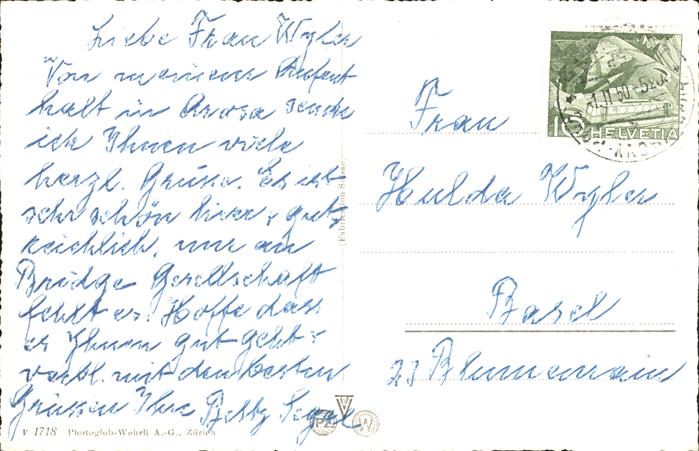 Liebe Frau Wyler
Von meinem Aufent
halt in Arosa sende
ich Ihnen viele
herzl. Grüsse. Es ist
sehr schön hier & gut,
reichlich, nur an
Bridge Gesellschaft
fehlt es. Hoffe dass
es Ihnen gut geht &
verbl. mit den besten
Grüssen Ihre Betty Segal
F 1718 Photoglob-Wehrli A.-G., Zürich
(Fabrication Suisse)
PZ
W
10
HELVETIA
Frau
Hulda Wyler
Basel
23 Blumenrain